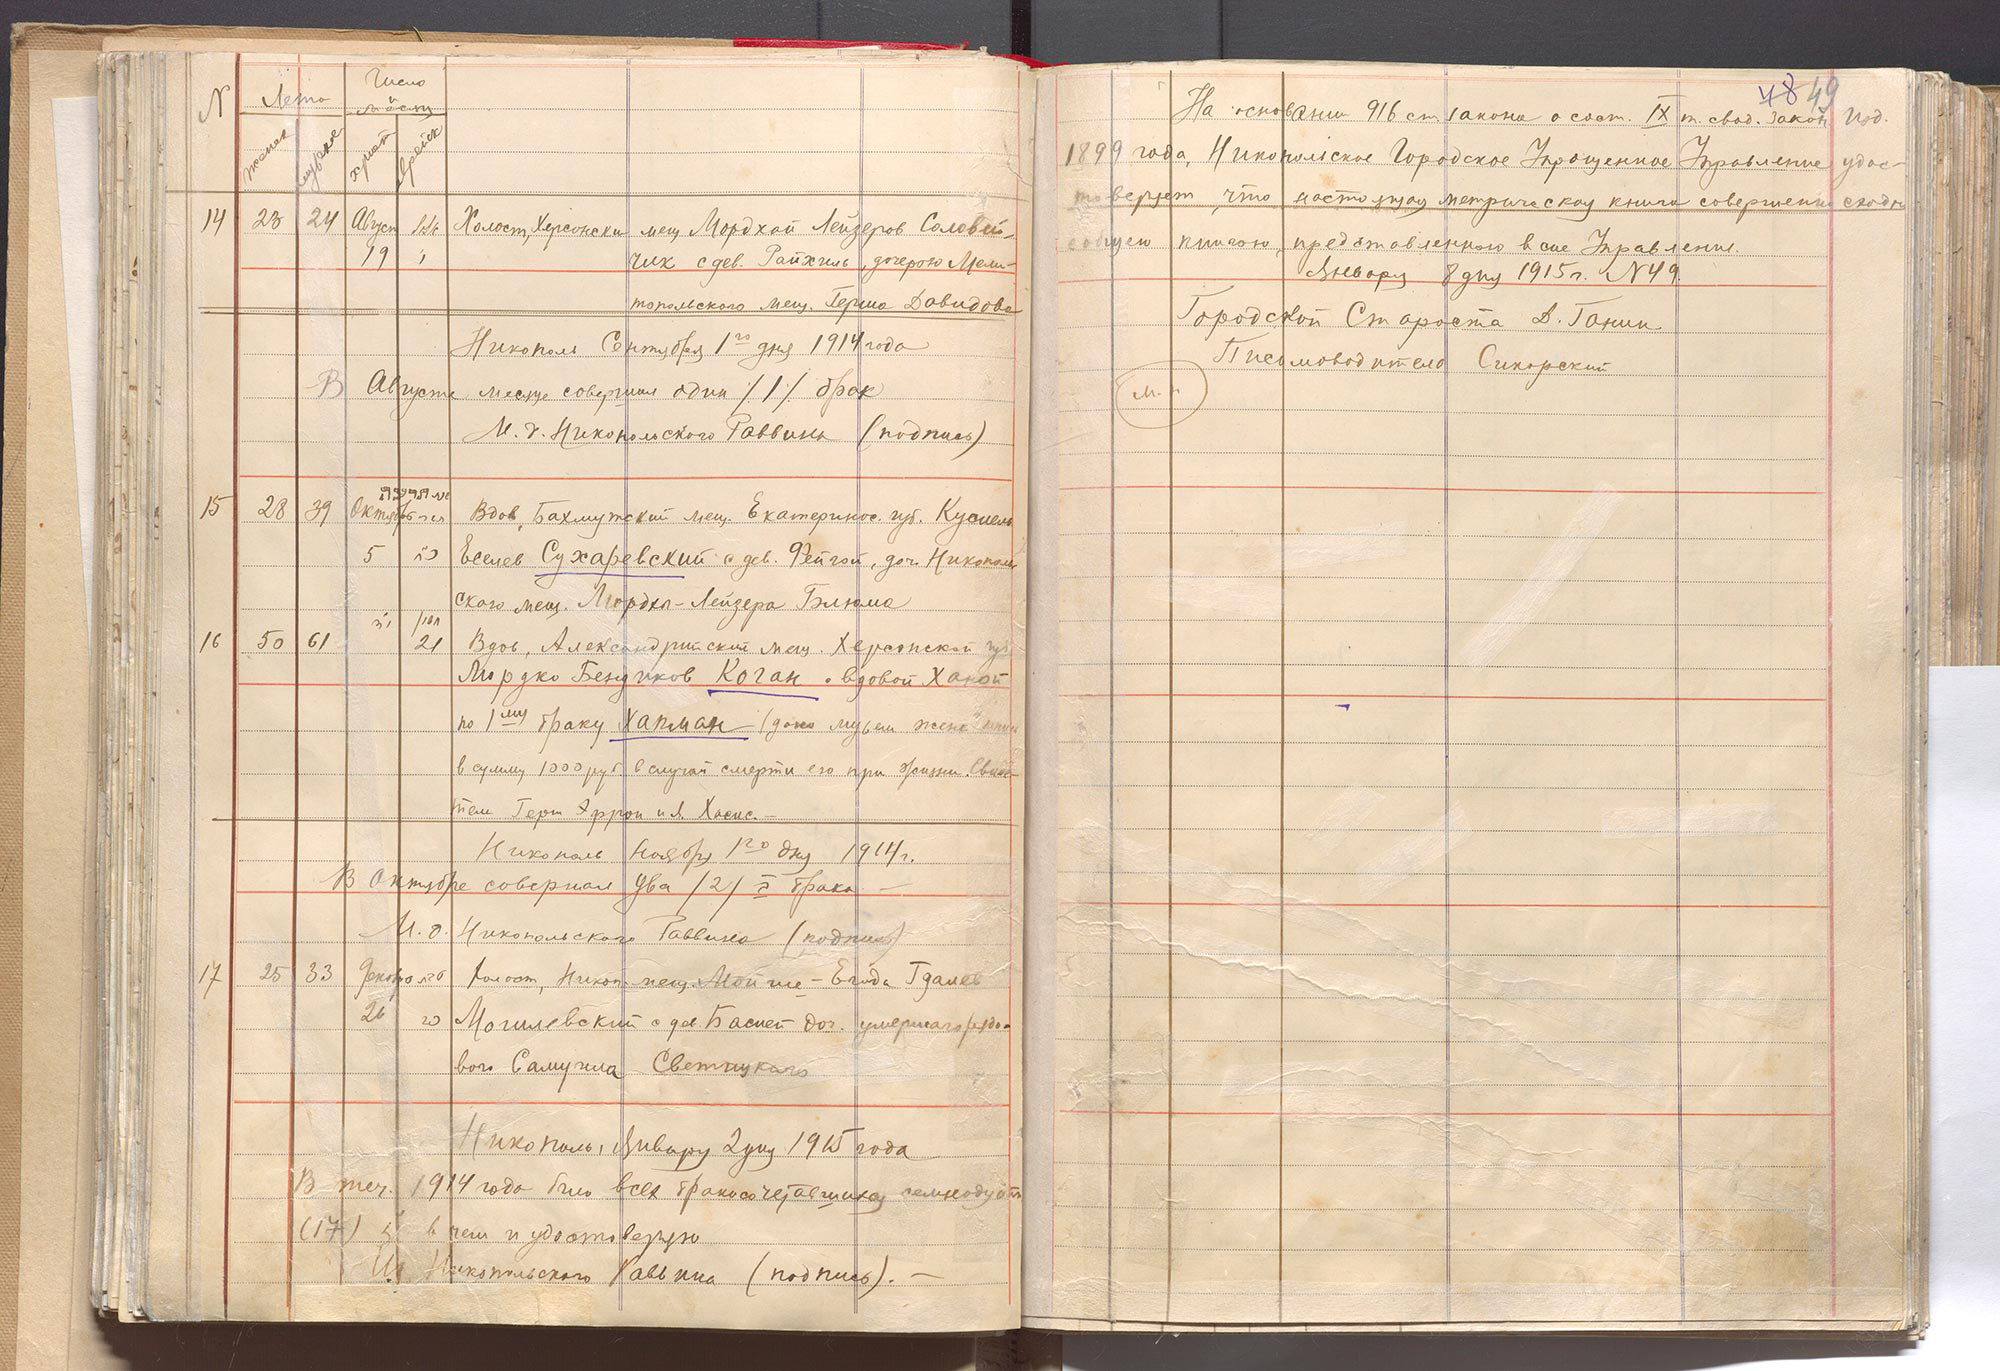 N Лета Число и месяц
женск мужск христ еврейск
14 23 24 Август Холост, Херсонски мещ Мордхай Лейзеров Соловей-
19 чик с дев. Райхиль, дочерою Мели-
топольского мещ. Герша Давидова
Никополь Сентября 1го дня 1914 года
В Августе месяце совершил один /1/ брак
И. д. Никопольского Раввина (подпись)
15 28 39 Октябр Вдов, Бахмутский мещ. Екатеринос. губ. Кусиель
5 Еселев Сухаревский с дев. Фейгой, доч. Никополь
ского мещ. Мордхи-Лейзера Блюма
16 50 61 21 Вдов, Александрийский мещ. Херсонской губ
Мордко Бендиков Коган с вдовой Ханой
по 1му браку Хапман (дано мужем жене
в сумму 1000 руб в случай смерти его при жизни. Свиде-
тели Герш Эфрон и Я. Хасис.-
Никополь Ноября 1го дня 1914 г.
В Октябре совершил два /2/ брака -
И. д. Никопольского Раввина (подпись)
17 25 33 Декабр Холост, Никоп. мещ. Мойше - Егуда Гдалев
26 Могилевский с дев. Басией доч. умершаго рядо-
вого Самуила Светицкаго
Никополь, Январу 2 дня 1915 года
В теч. 1914 года было всех бракосочетавшихся семнадцать
(17) в чем и удостоверяю
И д Никопольского Раввина (подпись). -
48 49
На основании 916 ст закона о сост. IX т. свод. Закон изд.
1899 года, Никопольское Городское Упрощенное Управление удос-
товеряет, что настоящая метрическая книга совершенно сходна
с общею книгою, представленною в сие Управление.
Январу 8 дня 1915 г. N 49.
Городской Староста Д. Ганин
Письмоводитель Сикорский
М. П